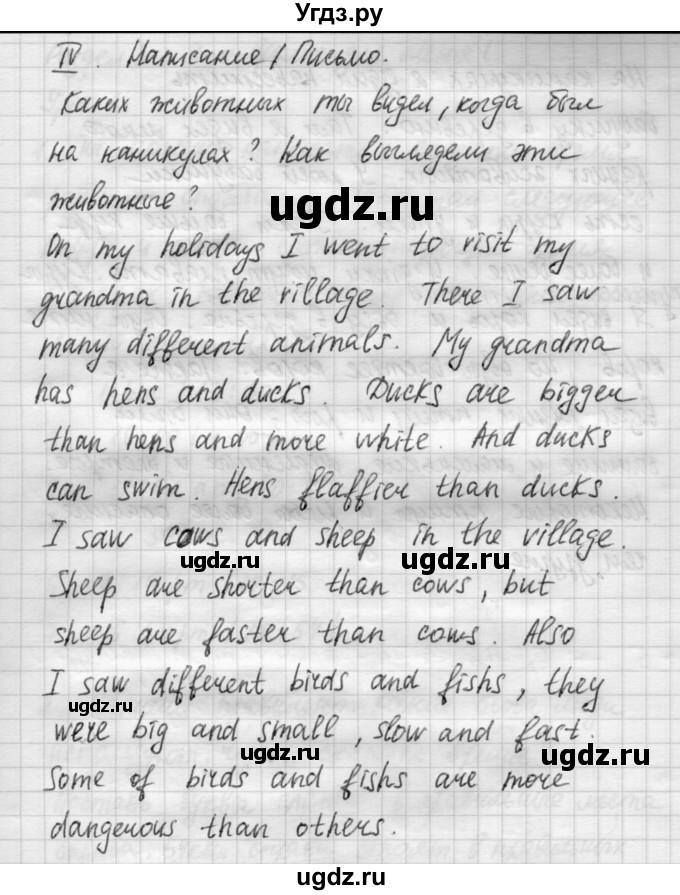 Угдз.ру
IV. Написание / Письмо.
Каких животных ты видел, когда был
на каникулах? Как выглядели эти
животные?
ugdz.ru
On my holidays I went to visit my
grandma in the village. There I saw
many different animals. My grandma
has hens and ducks. Ducks are bigger
than hens and more white. And ducks
can swim. Hens flaffier than ducks.
I saw cows and sheep in the village.
ugdz.ru
ugdz.ru
Sheep are shorter than cows, but
sheep are faster than cows. Also
I saw different birds and fishs, they
ugdz.ru
were big and small, slow and fast.
ugdz.ru
ugdz.ru
Some of birds and fishs are more
dangerous than others.
ugdz.ru